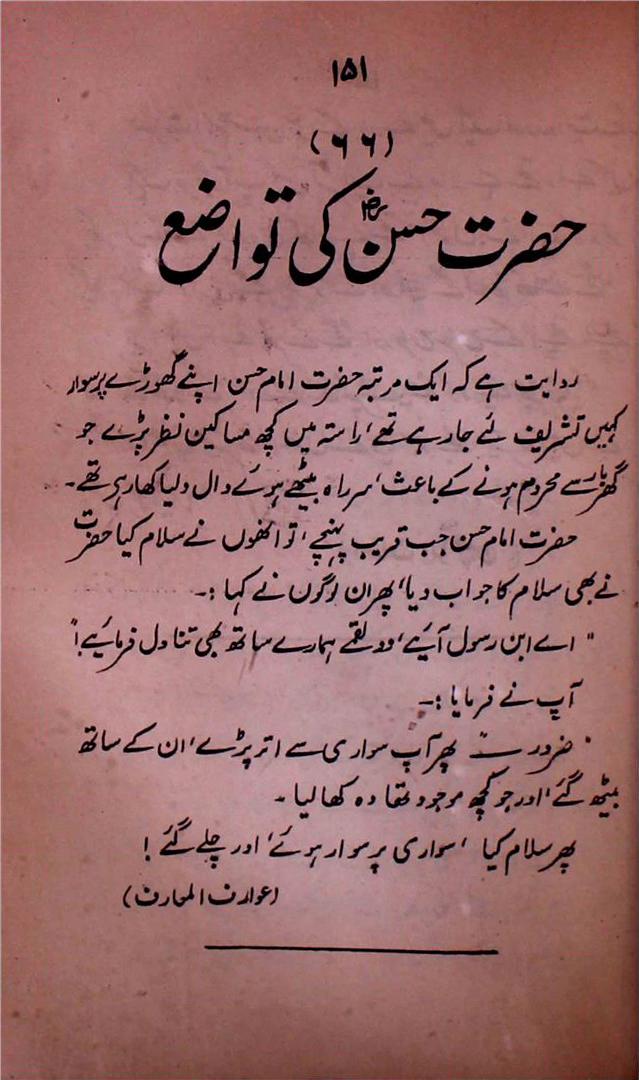 ۱۵۱
(۶۶)
حضرت حسنؓ کی تواضع
روایت ہے کہ ایک مرتبہ حضرت امام حسن اپنے گھوڑے پر سوار
کہیں تشریف لئے جا رہے تھے، راستہ میں کچھ مساکین نظر پڑے جو
گھر بار سے محروم ہونے کے باعث، سر راہ بیٹھے ہوئے دال دلیا کھا رہی تھے۔
حضرت امام حسن جب قریب پہنچے، تو انھوں نے سلام کیا حضرت
نے بھی سلام کا جواب دیا، پھر ان لوگوں نے کہا :۔
" اے ابن رسول آئیے، دو لقمے ہمارے ساتھ بھی تناول فرمائیے!"
آپ نے فرمایا :۔
" ضرور " پھر آپ سواری سے اتر پڑے، ان کے ساتھ
بیٹھ گئے، اور جو کچھ موجود تھا وہ کھا لیا۔
پھر سلام کیا، سواری پر سوار ہوئے، اور چلے گئے !
(عوارف المعارف)